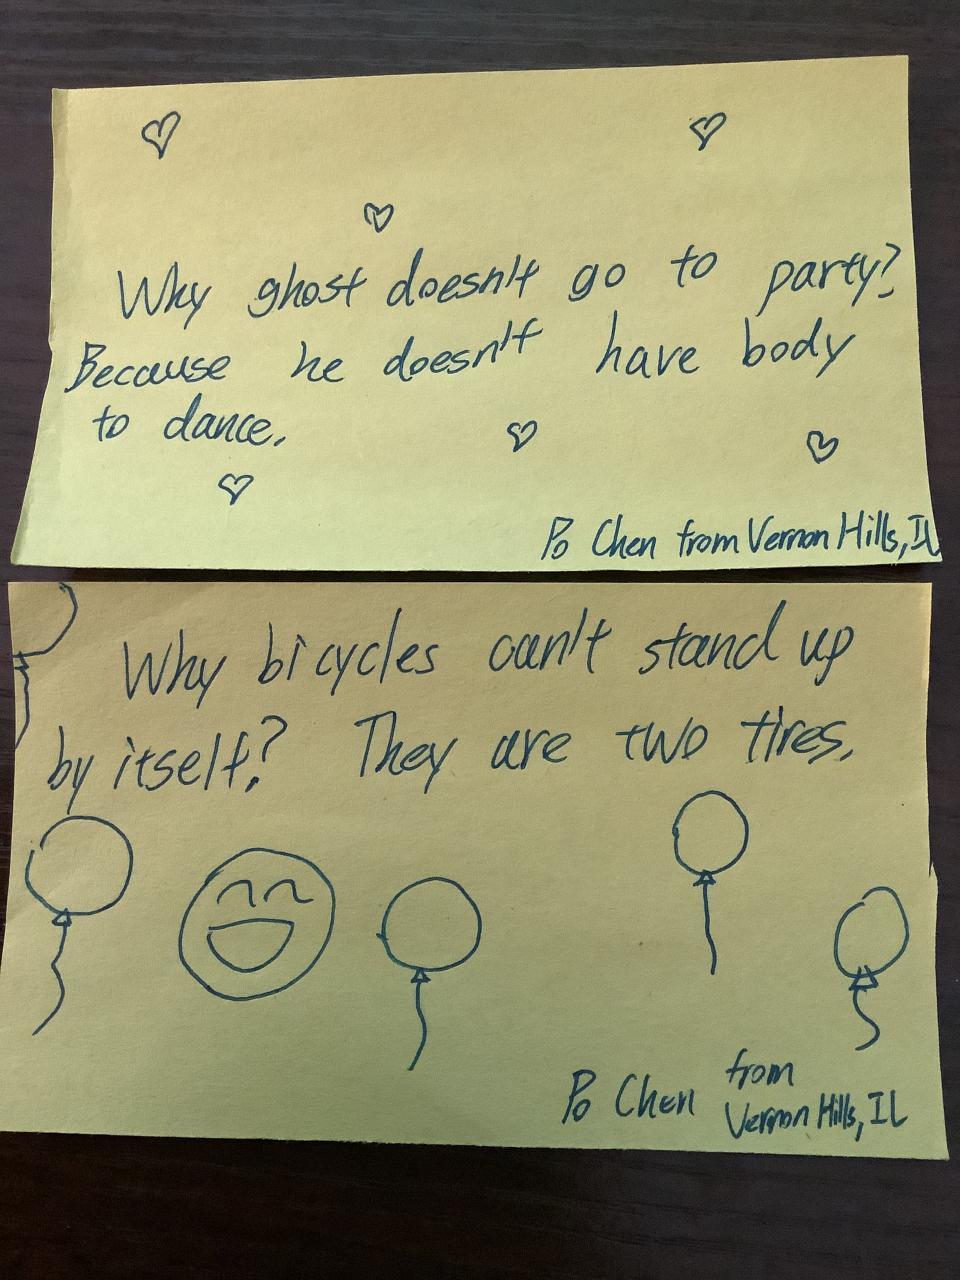 Why ghost doesn't go to party?
Because he doesn't have body
to dance.
Po Chen from Vernon Hills, IL
Why bicycles can't stand up
by itself? They are two tires.
Po Chen from
Vernon Hills, IL